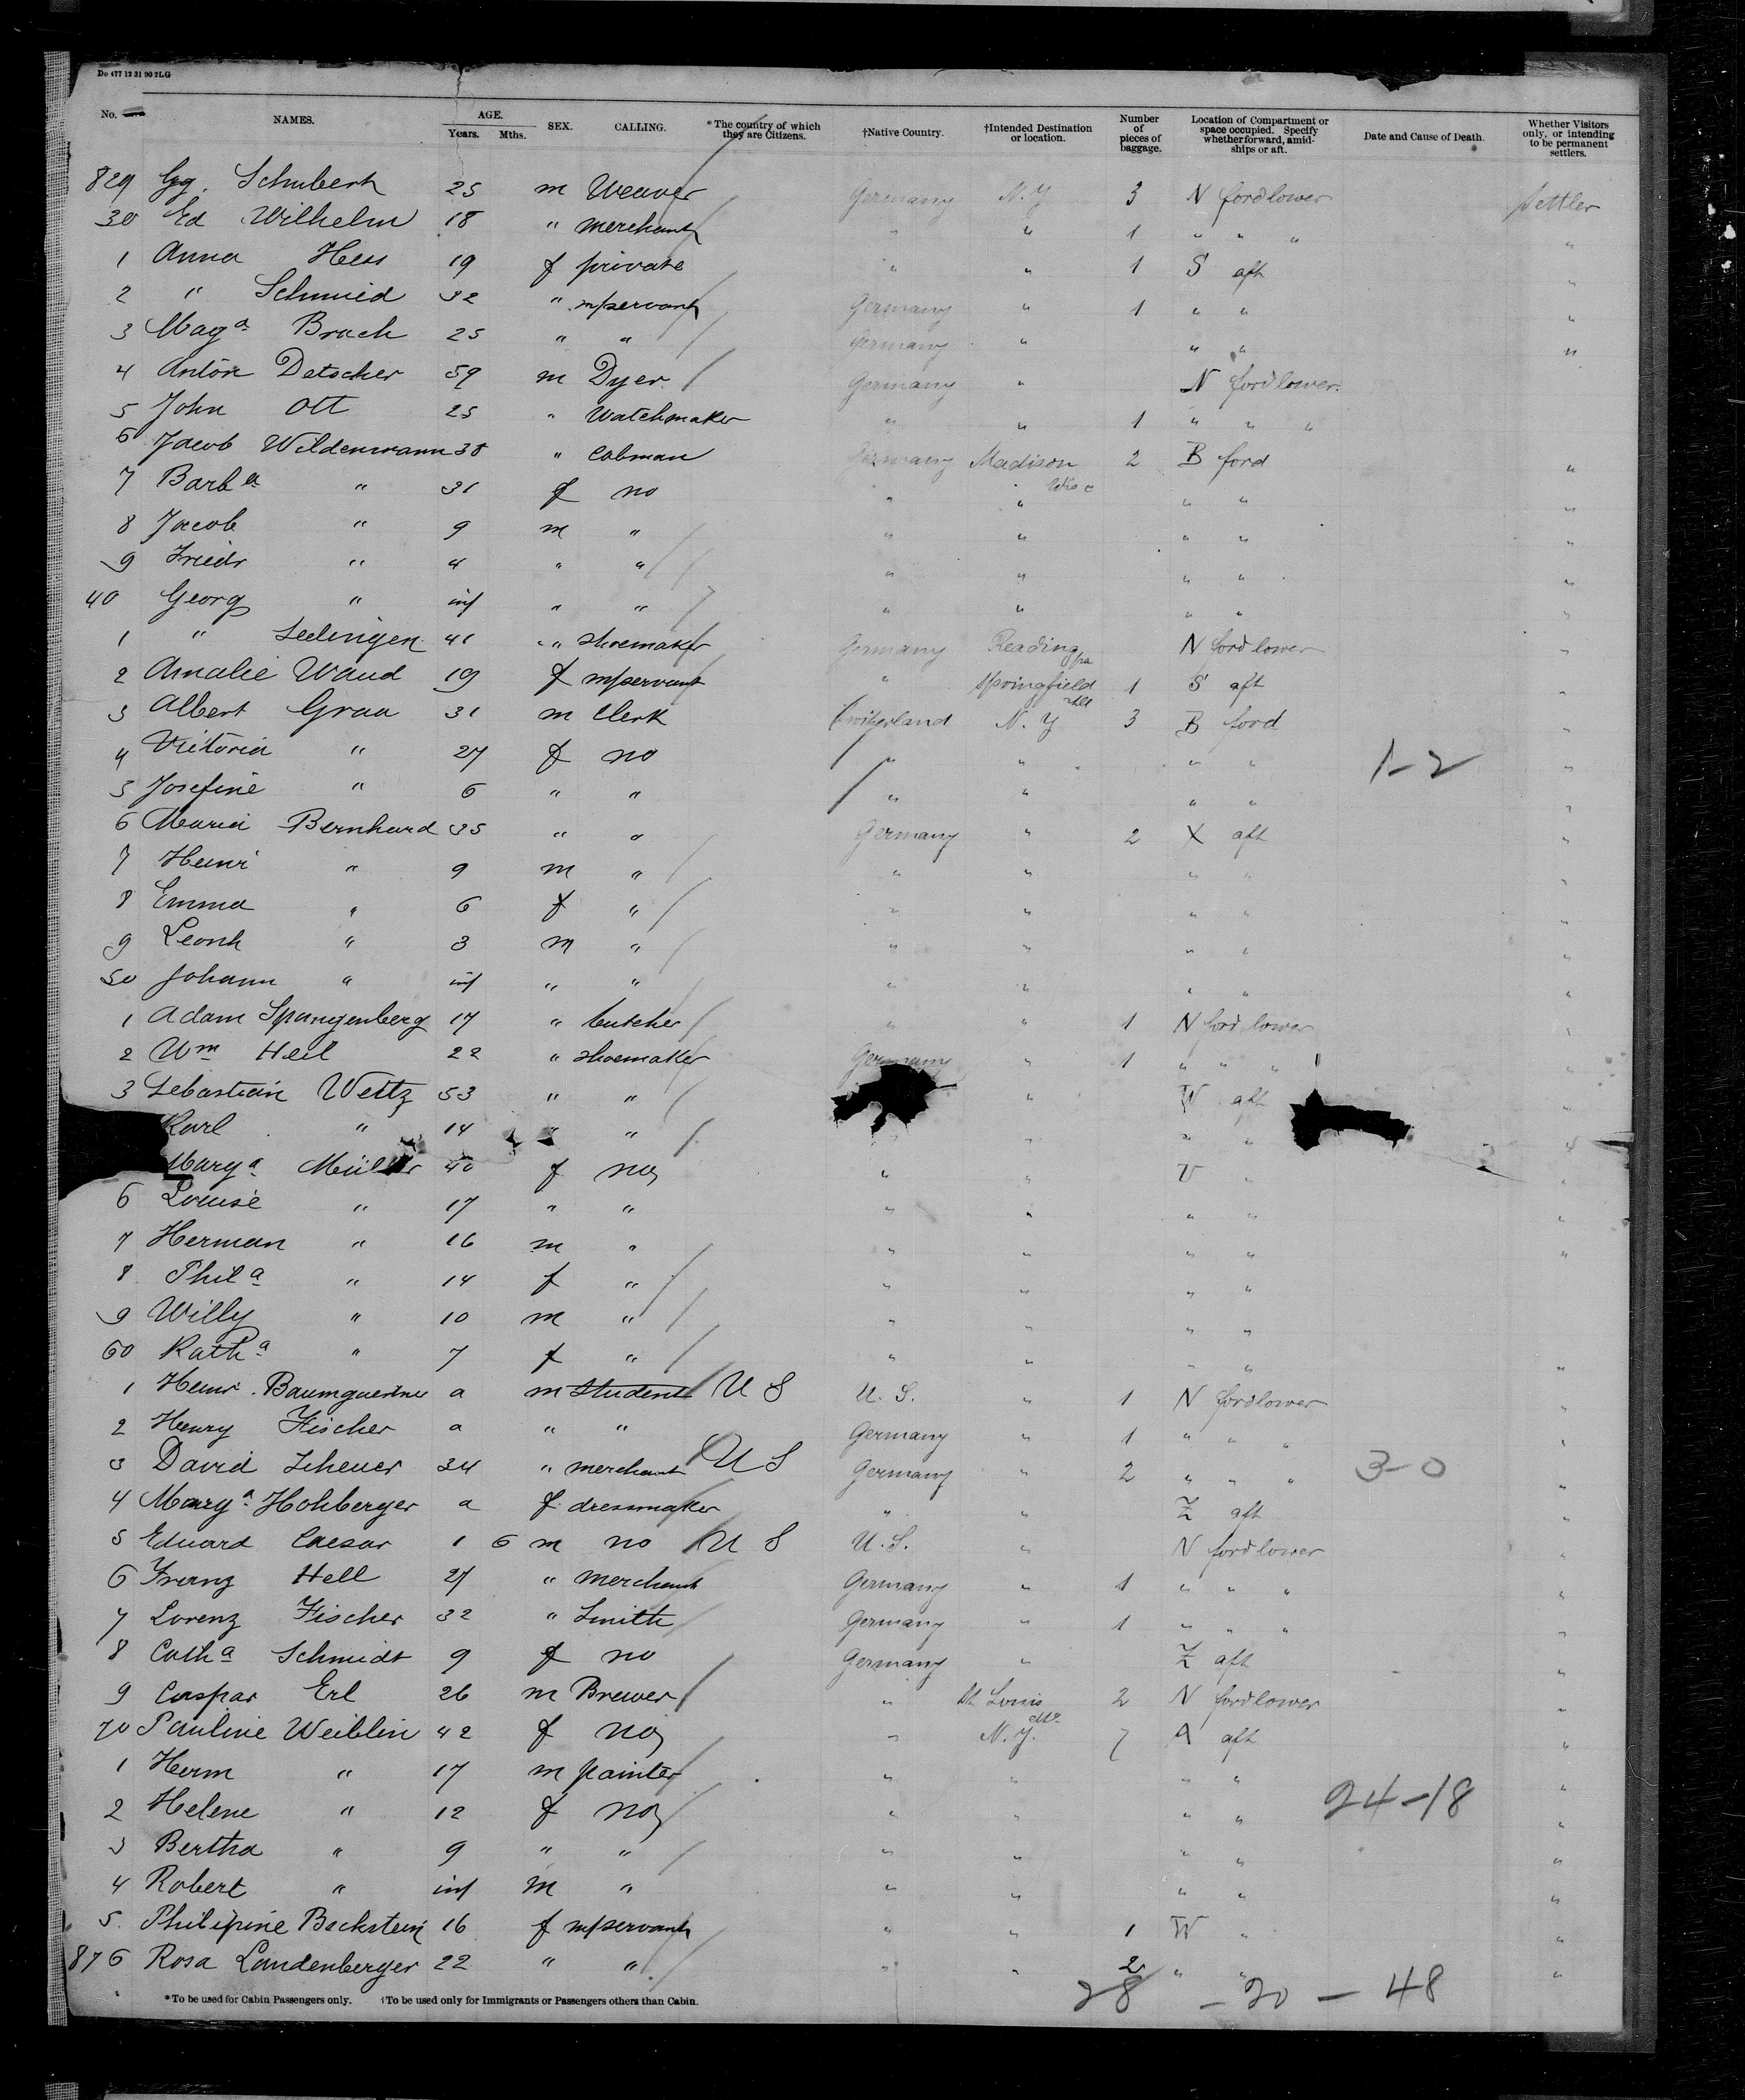 Do 477 12 31 90 2LG
No. NAMES. AGE. Years. Mths. SEX. CALLING. *The country of which they are Citizens. †Native Country. †Intended Destination or location. Number of pieces of baggage. Location of Compartment or space occupied. Specify whether forward, amidships or aft. Date and Cause of Death. Whether Visitors only, or intending to be permanent settlers.
829 Gg. Schubert 25 m Weaver Germany N.Y 3 N ford lower settler
30 Ed Wilhelm 18 " merchant " " 1 " " " "
1 Anna Hess 19 f private " " 1 S aft "
2 " Schmied 32 " m/servant Germany " 1 " " "
3 Maga Brach 25 " " Germany " " " "
4 Anton Detscher 59 m Dyer Germany " N ford lower.
5 John Ott 25 " Watchmaker " " 1 " " "
6 Jacob Wildenmann 38 " Cabman Germany Madison Wisc 2 B ford "
7 Barba " 31 f no " " " " "
8 Jacob " 9 m " " " " " "
9 Friedr " 4 " " " " " " "
40 Georg " inf " " " " " " "
1 " 41 " shoemaker Germany Reading pa N ford lower "
2 Amalie Waud 19 f m/servant " Springfield 1 S aft "
3 Albert Graa 31 m Clerk Switzerland N.Y 3 B ford "
4 Victoria " 27 f no " " " " 1-2 "
5 Josefine " 6 " " " " " " "
6 Maria Bernhard 35 " " Germany " 2 X aft "
7 Heinr " 9 m " " " " " "
8 Emma " 6 f " " " " " "
9 Leonh " 3 m " " " " " "
50 Johann " inf " " " " " " "
1 Adam Spangenberg 17 " butcher " " 1 N ford lower "
2 Wm Heil 22 " shoemaker Germany " 1 " " " "
3 Sebastian Weitz 53 " " " W aft "
Karl " 14 " " " " " "
Marga Müller 40 f no " " V " "
6 Louise " 17 " " " " " " "
7 Herman " 16 m " " " " " "
8 Phila " 14 f " " " " "
9 Willy " 10 m " " " " "
60 Katha " 7 f " " " " " "
1 Heinr. Baumgaertner a m student U S U.S. " 1 N ford lower "
2 Henry Fischer a " " Germany " 1 " " " "
3 David Scheuer 34 " merchant U S Germany " 2 " " " 3-0 "
4 Marga Hohberger a f dressmaker " Z aft "
5 Eduard Caesar 1 6 m no U S U.S. " N ford lower "
6 Franz Hell 27 " merchant Germany " 1 " " " "
7 Lorenz Fischer 32 " Smith Germany " 1 " " " "
8 Catha Schmidt 9 f no Germany " Z aft "
9 Caspar Erl 26 m Brewer " St Louis Mo. 2 N ford lower "
70 Pauline Weiblin 42 f no " N.Y. 7 A aft "
1 Herm " 17 m painter " " " " "
2 Helene " 12 f no " " " " 24-18 "
3 Bertha " 9 " " " " " " "
4 Robert " inf m " " " " " "
5. Philipine Beckstein 16 f m/servant " " 1 W " "
876 Rosa Landenberger 22 " " " " 2 " " "
*To be used for Cabin Passengers only. †To be used only for Immigrants or Passengers others than Cabin.
28 - 20 - 48